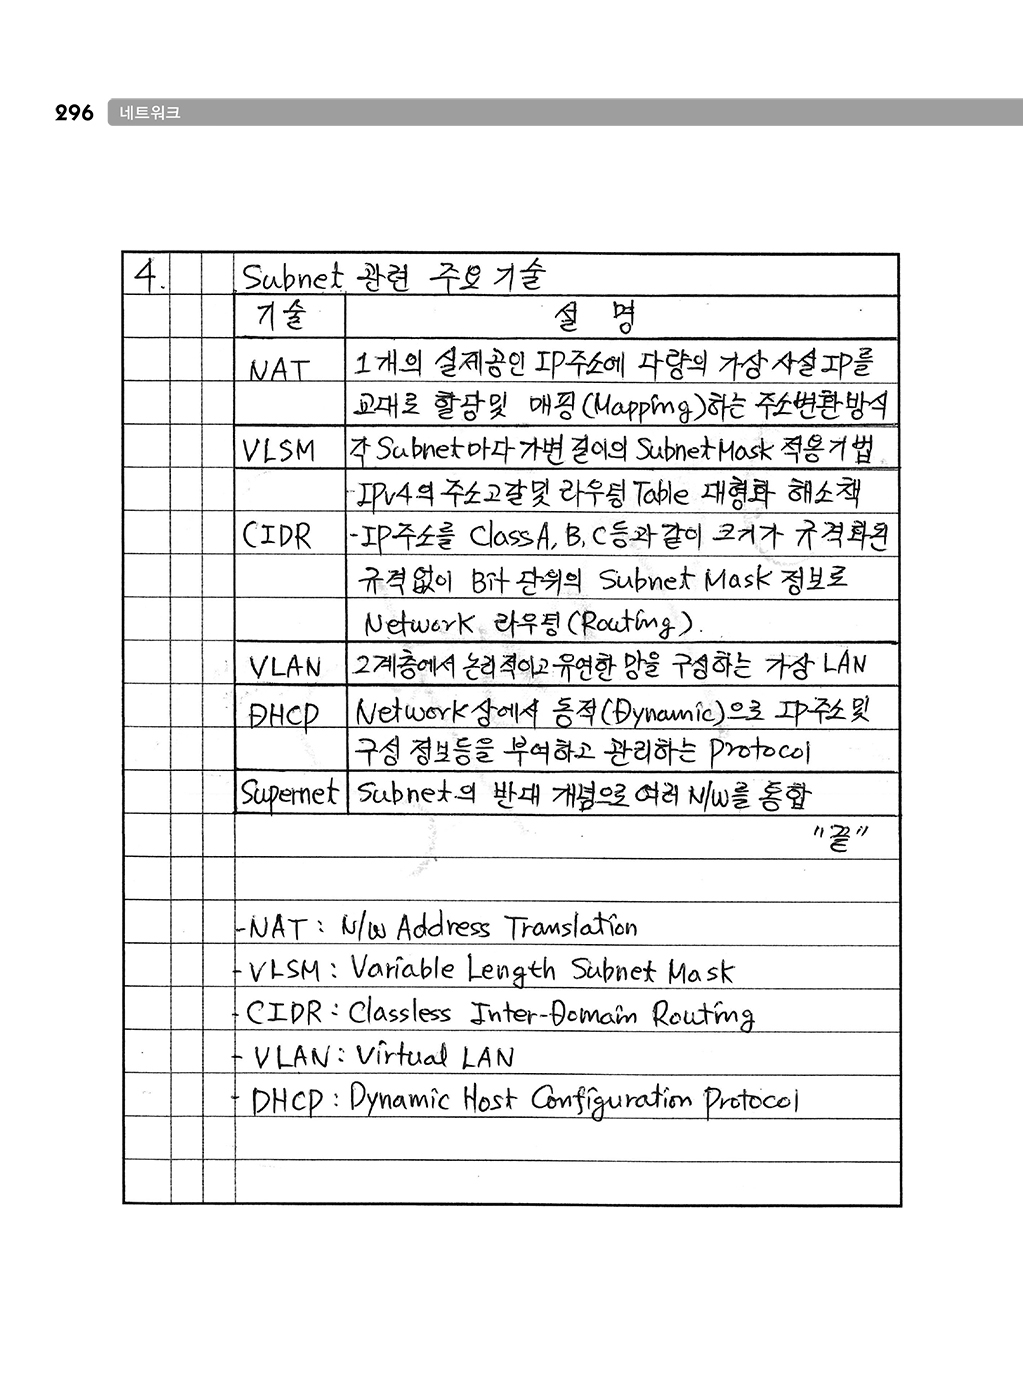 296 네트워크
4. Subnet 관련 주요 기술
기술 설 명
NAT 1개의 실제공인 IP주소에 다량의 가상 사설 IP를
교대로 할당및 매핑(Mapping)하는 주소변환방식
VLSM 각 Subnet마다 가변 길이의 Subnet Mask 적용기법
-IPv4의 주소고갈및 라우팅 Table 대형화 해소책
CIDR -IP주소를 Class A, B, C등과 같이 크기가 규격화된
규격없이 Bit 단위의 Subnet Mask 정보로
Network 라우팅(Routing).
VLAN 2계층에서 논리적이고 유연한 망을 구성하는 가상 LAN
DHCP Network상에서 동적(Dynamic)으로 IP주소 및
구성 정보등을 부여하고 관리하는 Protocol
Supernet Subnet의 반대 개념으로 여러 N/W를 통합
"끝"
-NAT : N/W Address Translation
-VLSM : Variable Length Subnet Mask
-CIDR : Classless Inter-Domain Routing
- VLAN : Virtual LAN
- DHCP : Dynamic Host Configuration Protocol